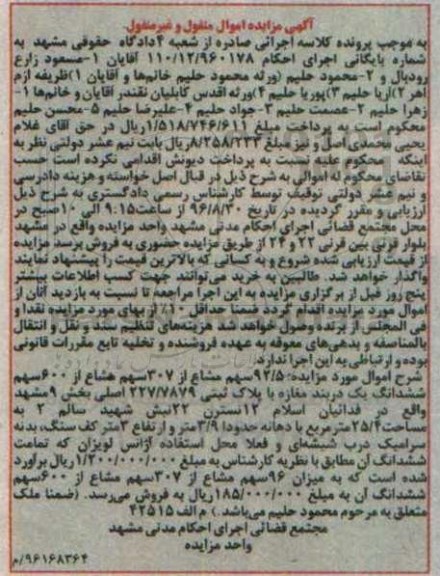 آگهی مزایده اموال منقول و غیرمنقول
به موجب پرونده کلاسه اجرائی صادره از شعبه ۴دادگاه حقوقی مشهد به
شماره بایگانی اجرای احکام ۱۱۰/۱۲/۹۶۰۱۷۸ آقایان ۱-مسعود زارع
رودبال و ۲-محمود حلیم (ورثه محمود حلیم خانم‌ها و آقایان ۱)ظریفه ازم
اهر ۲)آریا حلیم ۳)پوریا حلیم ۴)ورثه اقدس کابلیان نقندر آقایان و خانم‌ها ۱-
زهرا حلیم ۲-عصمت حلیم ۳-جواد حلیم ۴-علیرضا حلیم ۵-محسن حلیم
محکوم است به پرداخت مبلغ ۱/۵۱۸/۷۴۶/۶۱۱ریال در حق آقای غلام
یحیی محمدی اصل و نیز مبلغ ۸/۲۵۸/۲۳۳ریال بابت نیم عشر دولتی نظر به
اینکه محکوم علیه نسبت به پرداخت دیونش اقدامی نکرده است حسب
تقاضای محکوم له اموالی به شرح ذیل در قبال اصل خواسته و هزینه دادرسی
و نیم عشر دولتی توقیف توسط کارشناس رسمی دادگستری به شرح ذیل
ارزیابی و مقرر گردیده در تاریخ ۹۶/۸/۳۰ از ساعت۹:۱۵ الی ۱۰صبح در
محل مجتمع قضائی اجرای احکام مدنی مشهد واحد مزایده واقع در مشهد
بلوار قرنی بین قرنی ۲۲ و ۲۴ از طریق مزایده حضوری به فروش برسد مزایده
از قیمت ارزیابی شده شروع و به کسانی که بالاترین قیمت را پیشنهاد نمایند
واگذار خواهد شد. طالبین به خرید می‌توانند جهت کسب اطلاعات بیشتر
پنج روز قبل از برگزاری مزایده به این اجرا مراجعه تا نسبت به بازدید آنان از
اموال مورد مزایده اقدام گردد ضمنا حداقل ۱۰٪ از بهای مورد مزایده نقدا و
فی المجلس از برنده وصول خواهد شد هزینه‌های تنظیم سند و نقل و انتقال
بالمناصفه و بدهی‌های معوقه به عهده فروشنده و تخلیه تابع مقررات قانونی
بوده و ارتباطی به این اجرا ندارد.
شرح اموال مورد مزایده: ۹۲/۵سهم مشاع از ۳۰۷سهم مشاع از ۶۰۰سهم
ششدانگ یک دربند مغازه با پلاک ثبتی ۲۲۷/۷۸۷۹ اصلی بخش ۹مشهد
واقع در فدائیان اسلام ۱۲نسترن ۲۲نبش شهید سالم ۲ به
مساحت۲۵/۴مترمربع با دهانه حدودا ۳/۹متر و ارتفاع ۳متر کف سنگ، بدنه
سرامیک درب شیشه‌ای و فعلا محل استفاده آژانس لویزان که تمامت
ششدانگ آن مطابق با نظریه کارشناس به مبلغ ۱/۲۰۰/۰۰۰/۰۰۰ ریال برآورد
شده است که به میزان ۹۶سهم مشاع از ۳۰۷سهم مشاع از ۶۰۰سهم
ششدانگ آن به مبلغ ۱۸۵/۰۰۰/۰۰۰ریال به فروش می‌رسد. (ضمنا ملک
متعلق به مرحوم محمود حلیم می‌باشد.) م الف ۴۲۵۱۵
مجتمع قضائی اجرای احکام مدنی مشهد
واحد مزایده
۹۶۱۶۸۳۶۴/م